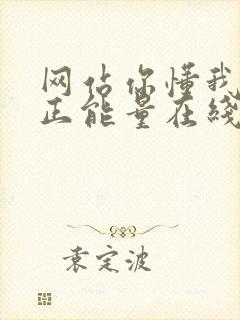 网站你懂我
正能量在线
袁定波